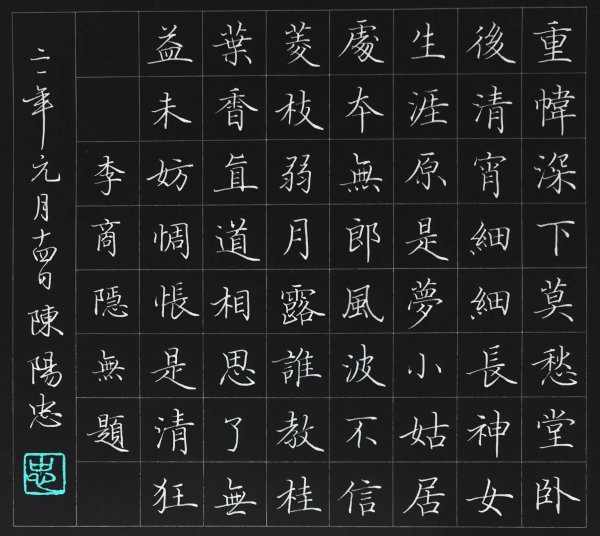 重幃深下莫愁堂臥
後清宵細細長神女
生涯原是夢小姑居
處本無郎風波不信
菱枝弱月露誰教桂
葉香直道相思了無
益未妨惆悵是清狂
李商隱無題
二一年元月十四日陳陽忠
忠